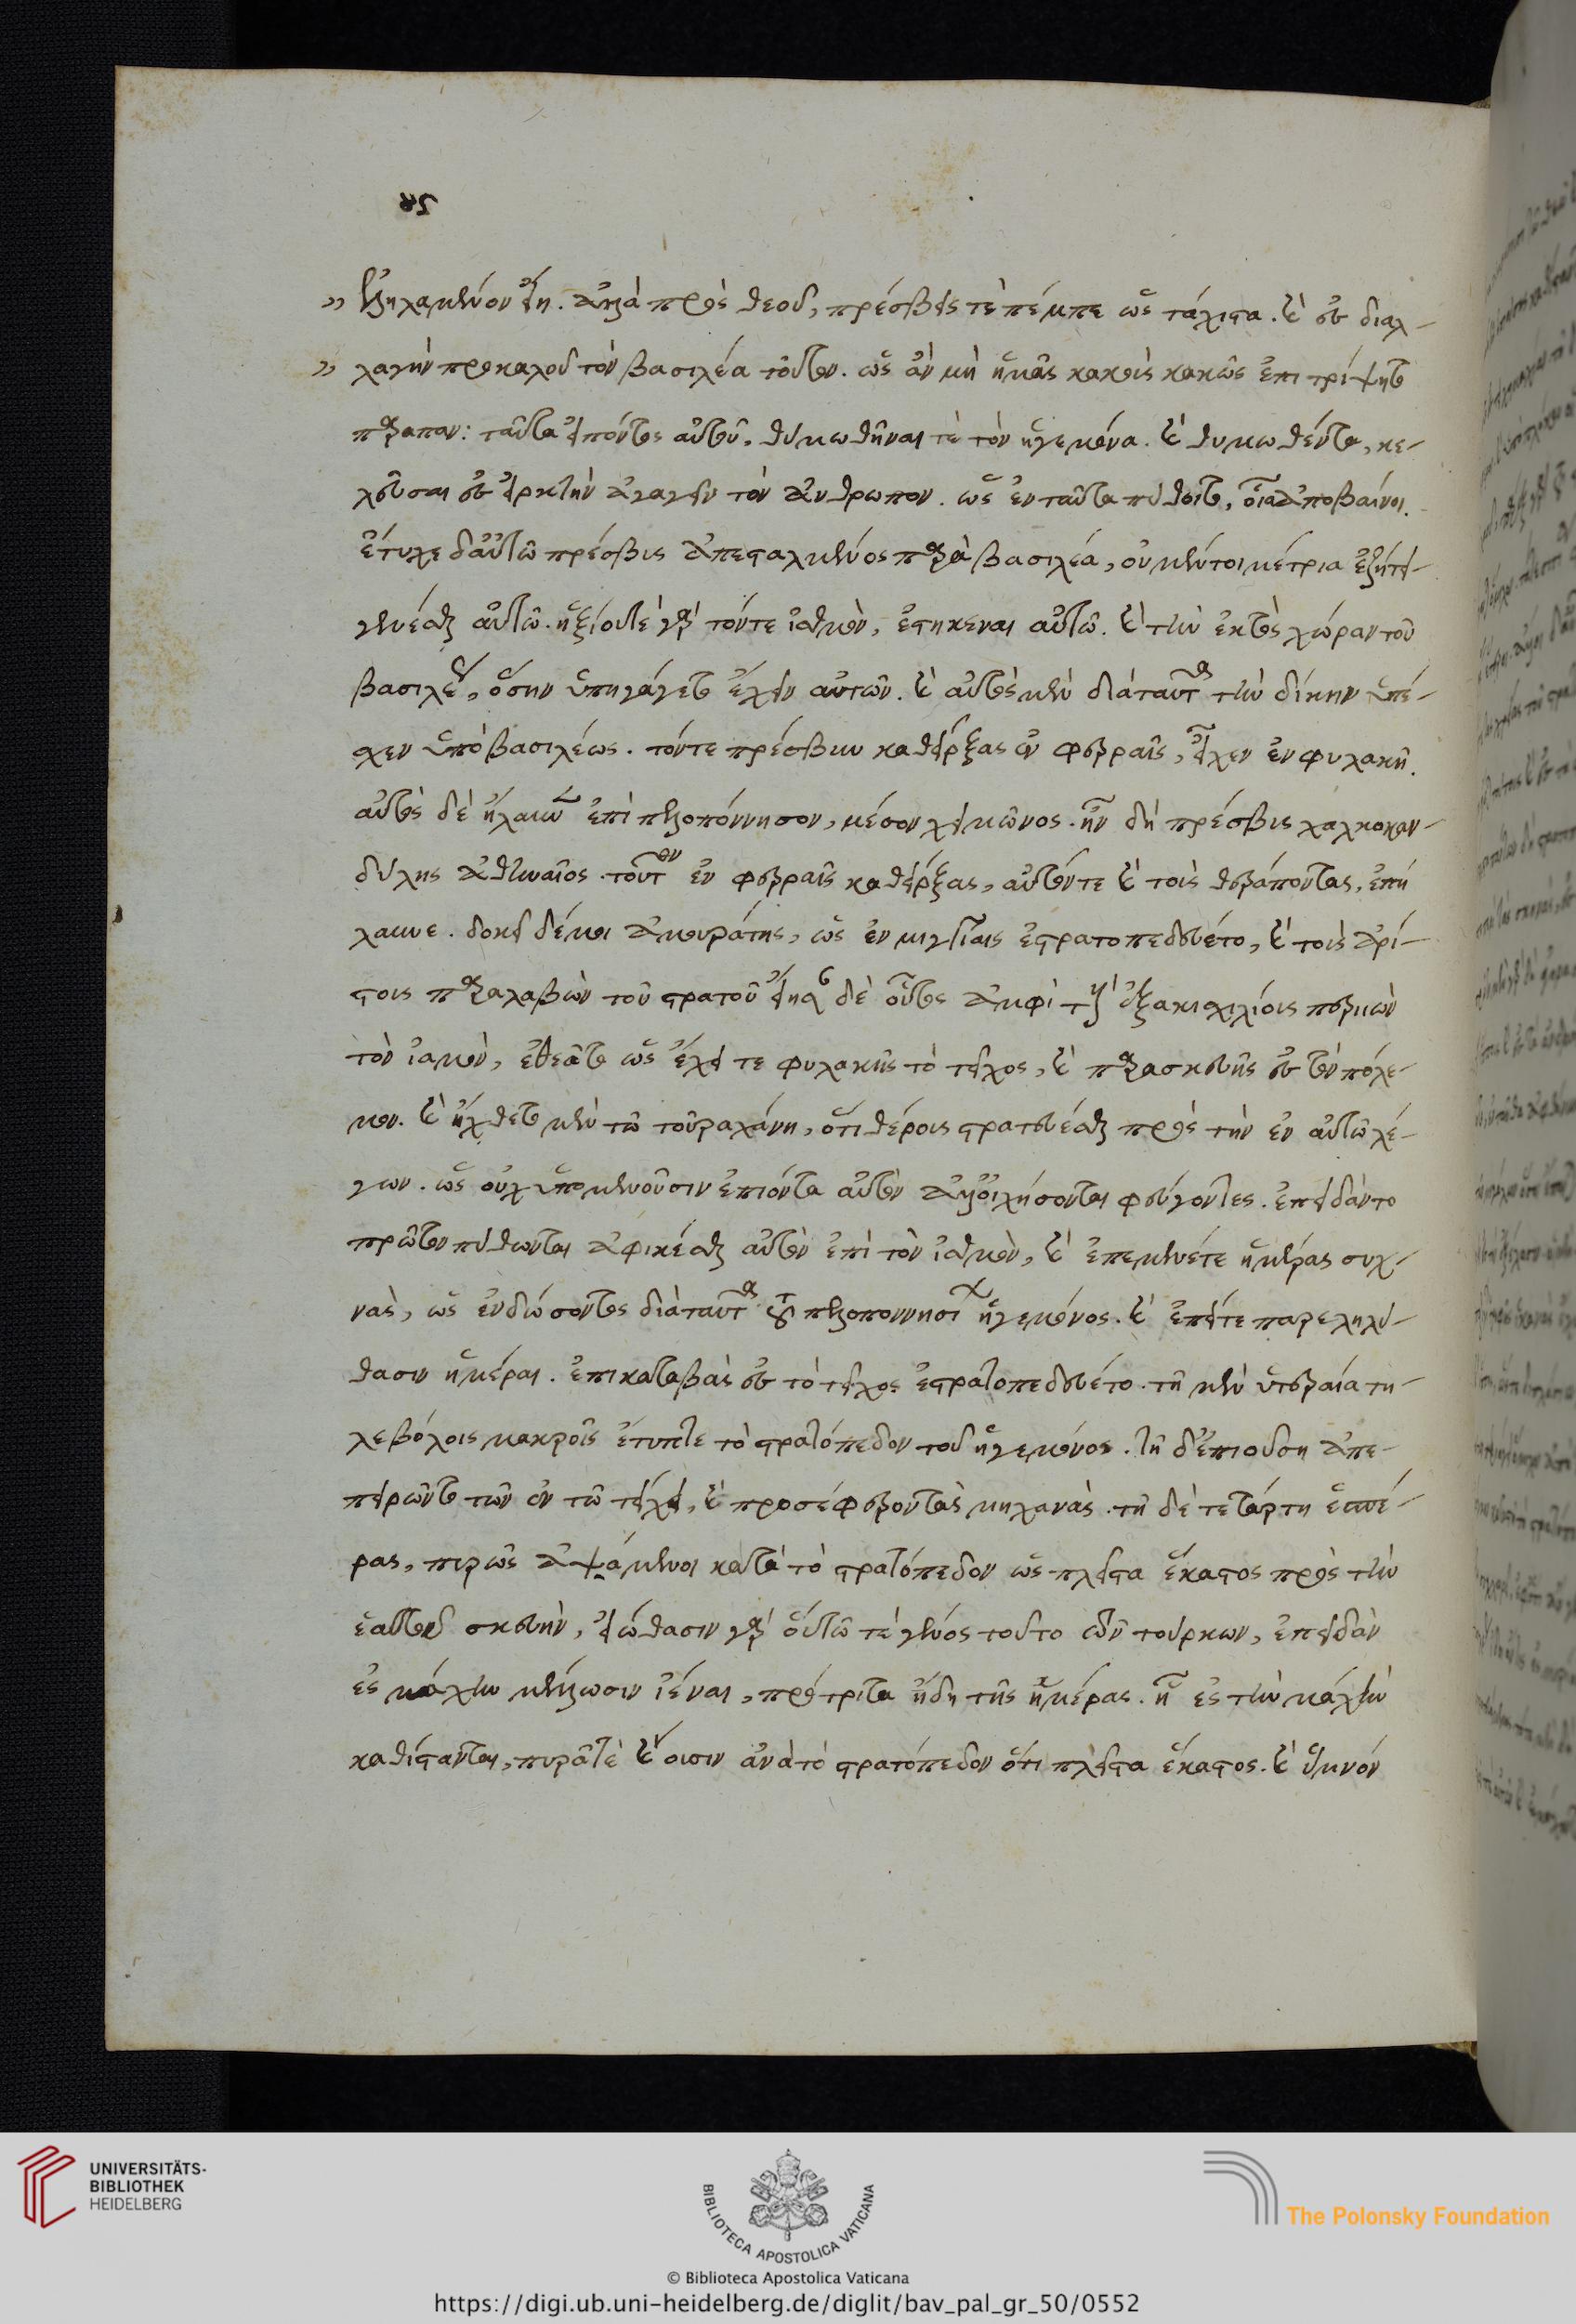 » Ἐληλαμένον εἴη. ἀλλὰ πρὸς θεοῦ, πρέσβεις τὲ πέμπε ὡς τάχιστα. καὶ ἐς διαλ-
» λαγὴν προκαλοῦ τὸν βασιλέα τοῦτον. ὡς ἂν μὴ ἡμᾶς κακοὺς κακῶς ἐπιτρίψητο
παράπαν: ταῦτα εἰπόντος αὐτοῦ, θυμωθῆναι τὲ τὸν ἡγεμόνα. καὶ θυμωθέντα, κε-
λεῦσαι ἐς εἱρκτὴν ἀγαγεῖν τὸν ἄνθρωπον. ὡς ἐνταῦτα πύθοιτο, οἷα ἀποβαίνοι.
ἔτυχε δαὐτῶ πρέσβις ἀπεσταλμένος παρὰ βασιλέα, οὐ μέντοι μέτρια ἐξήτει
γενέσθαι αὐτῶ. ἠξίου τὲ γὰρ τόντε ἰσθμὸν, ἑστηκεναι αὐτῶ. καὶ τὴν ἐκτὸς χώραν τοῦ
βασιλέως, ὅσην ὑπηγάγετο ἔχειν αὐτῶν. καὶ αὐτὸς μὲν διάταῦτα τὴν δίκην ὑπέ-
σχεν ὑπὸ βασιλέως. τόντε πρέσβιν καθείρξας ἐν φερραῖς, εἶχεν ἐν φυλακῆ.
αὐτὸς δὲ ἤλαυνεν ἐπὶ πελοπόννησον, μέσον χειμῶνος. ἦν δὴ πρέσβις χαλκοκαν-
δύλης ἀθηναῖος. τοῦτον ἐν φερραῖς καθείρξας, αὐτόντε καὶ τοὺς θεράποντας, ἐπή
λαυνε. δοκεῖ δέ μοι ἀμουράτης, ὡς ἐν μιγγίαις ἐστρατοπεδεύετο, καὶ τοὺς ἀρί-
στους παραλαβὼν τοῦ στρατοῦ εἴησαν δὲ οὗτος ἀμφὶ τοὺς ἑξακισχιλίους περιιὼν
τὸν ἰσμὸν, ἐθεᾶτο ὡς ἔχει τε φυλακῆς τὸ τεῖχος, καὶ παρασκευῆς ἐς τὸν πόλε-
μον. καὶ ἤχθετο μὲν τῶ τοῦραχάνη, ὅτι θέρους στρατεύεσθαι πρὸς τὴν ἐν αὐτῶ λέ-
γων. ὡς οὐχ ὑπομενοῦσιν ἐπιόντα αὐτὸν ἀλλοιχήσονται φεύγοντες. ἐπειδὰν το
πρῶτον πύθωνται ἀφικέσθαι αὐτὸν ἐπὶ τὸν ἰσθμὸν, καὶ ἐπεμένετε ἡμέρας συχ-
νὰς, ὡς ἐνδώσοντος διάταῦτα τοῦ πελοποννησίων ἡγεμόνος. καὶ ἐπείτε παρεληλύ-
θασιν ἡμέραι. ἐπικαταβὰς ἐς τὸ τεῖχος ἐστρατοπεδεύετο. τῆ μὲν ὑστεραία τη-
λεβόλοις μακροῖς ἔτυπτε τὸ στρατόπεδον τοῦ ἡγεμόνος. τῆ δ'ἐπιούση ἀπε-
πειρῶντο τῶν ἐν τῶ τείχει, καὶ προσέφερον τὰς μηχανὰς. τῆ δὲ τετάρτη ἑσπέ-
ρας, πυρῶς ἁψάμενοι κατὰ τὸ στρατόπεδον ὡς πλεῖστα ἕκαστος πρὸς τὴν
ἑαυτοῦ σκευὴν, εἰώθασιν γὰρ οὕτω τὲ γένος τοῦτο τῶν τούρκων, ἐπειδὰν
ἐς μάχην μέλλωσιν ἰέναι, πρό τριτα ἤδη τῆς ἡμέρας. ἣ ἐς τὴν μάχην
καθίστανται, πυρᾶ τὲ καίουσιν ἀνὰ τὸ στρατόπεδον ὅτι πλεῖστα ἕκαστος. καὶ ὕμνόν
UNIVERSITÄTS-
BIBLIOTHEK
HEIDELBERG
BIBLIOTECA APOSTOLICA VATICANA
The Polonsky Foundation
© Biblioteca Apostolica Vaticana
https://digi.ub.uni-heidelberg.de/diglit/bav_pal_gr_50/0552